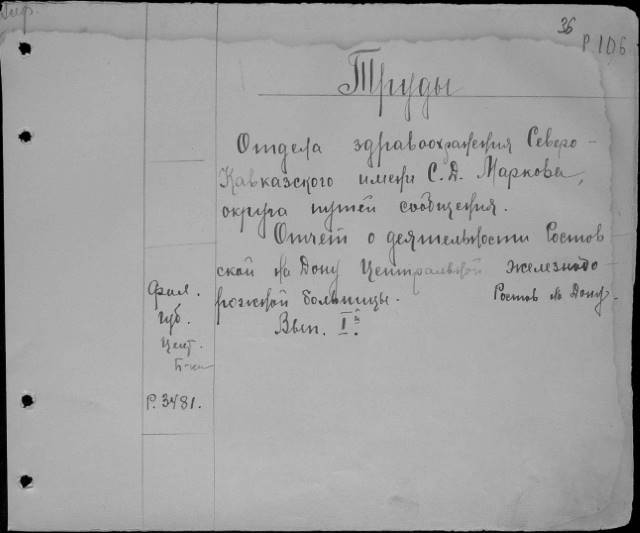 36
Р 106
Труды
Отдела здравоохранения Северо-
Кавказского имени С.Д. Маркова,
округа путей сообщения.
Отчет о деятельности Ростов
ской на Дону Центральной железнодо
рожной больницы. Ростов н Дону.
Вып. I й.
Фил.
Губ.
Цент.
Б-ки
Р. 3481.